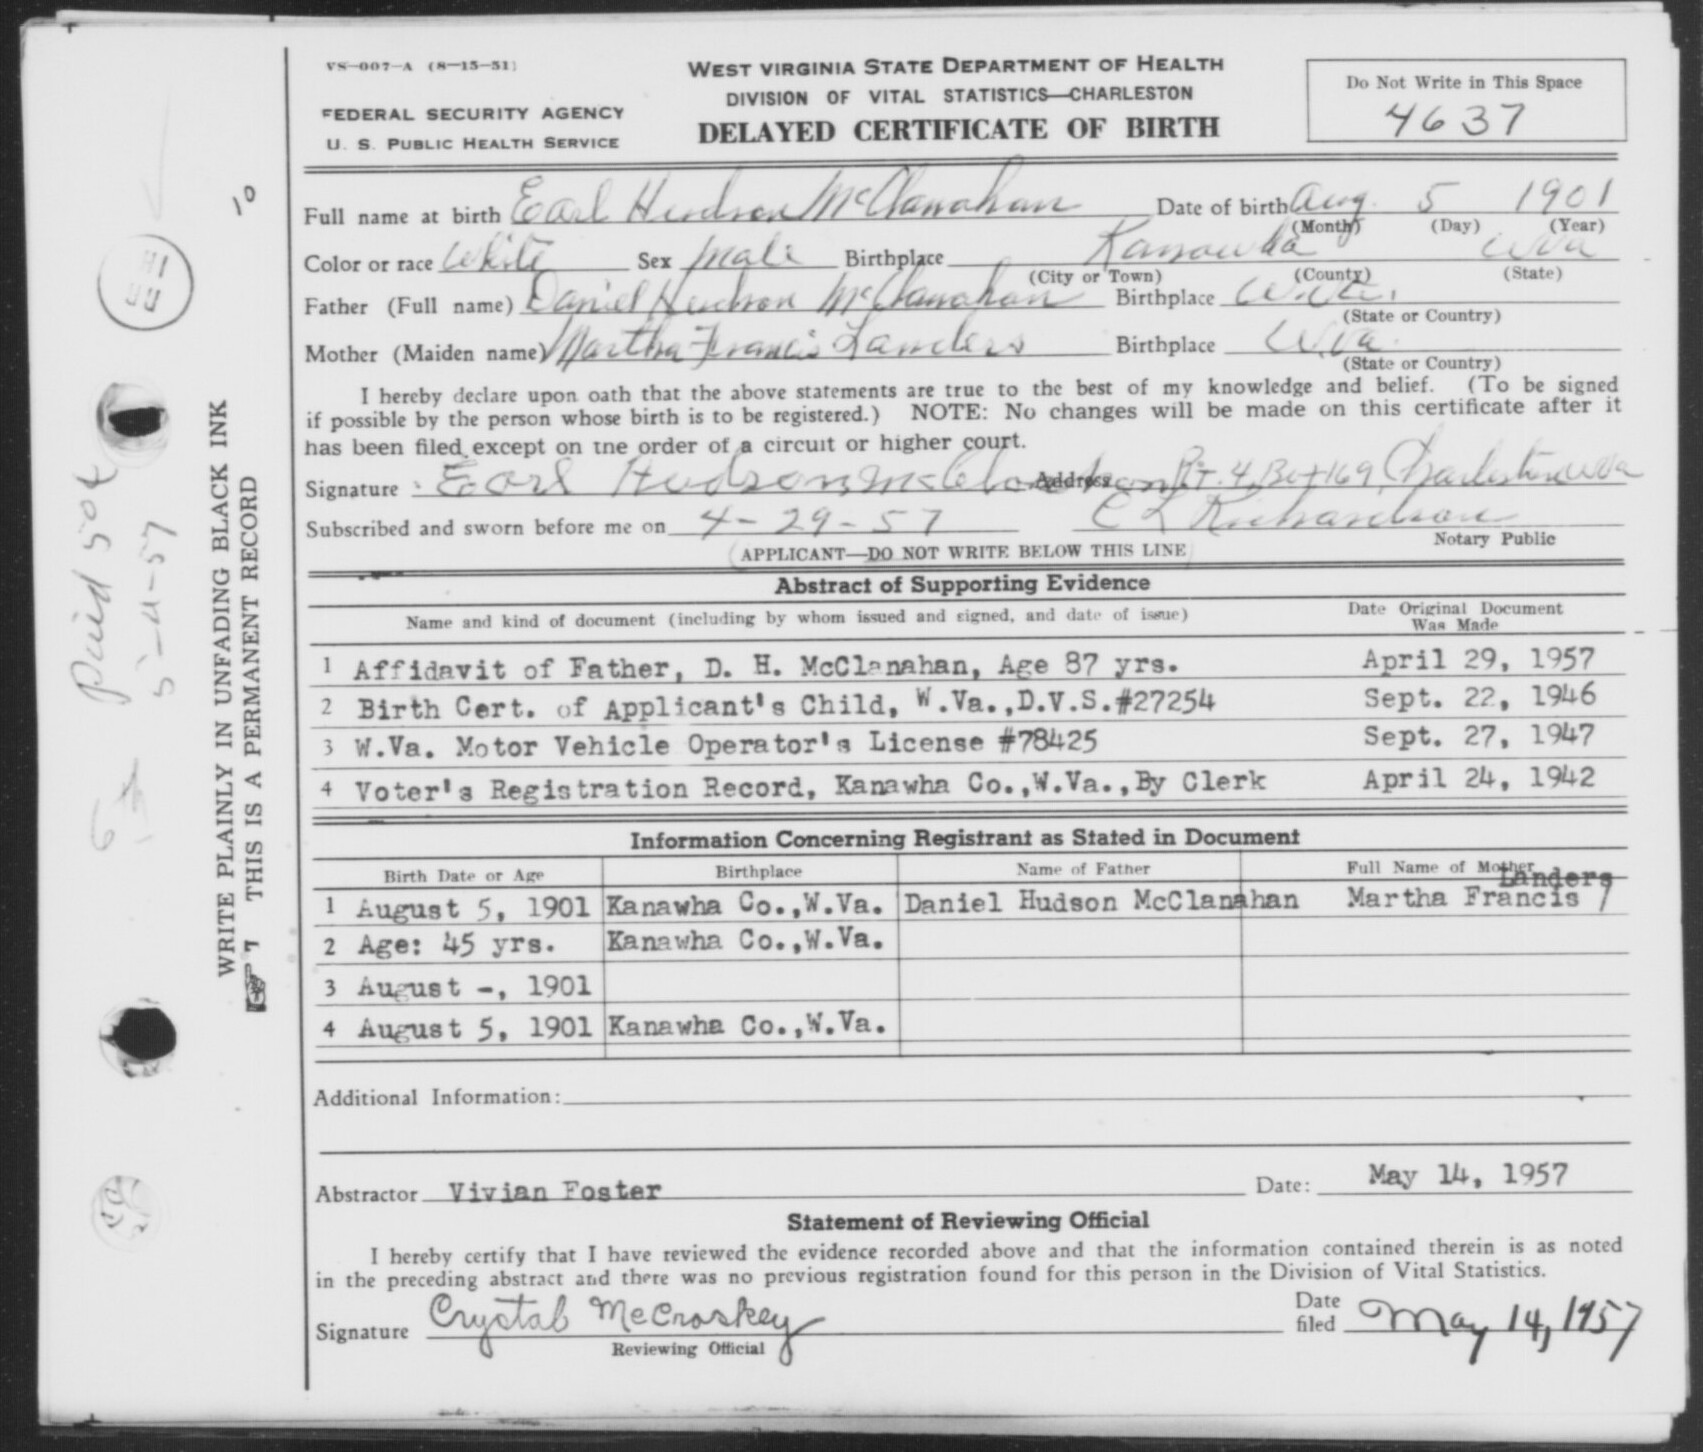 VS-007-A (8-15-51)
FEDERAL SECURITY AGENCY
U. S. PUBLIC HEALTH SERVICE
WEST VIRGINIA STATE DEPARTMENT OF HEALTH
DIVISION OF VITAL STATISTICS—CHARLESTON
DELAYED CERTIFICATE OF BIRTH
Do Not Write in This Space
4637
10
Full name at birth Earl Hudson McClanahan Date of birth Aug. 5 1901
(Month) (Day) (Year)
Color or race White Sex Male Birthplace Kanawha WVa
(City or Town) (County) (State)
Father (Full name) Daniel Hudson McClanahan Birthplace W.Va.
(State or Country)
Mother (Maiden name) Martha Francis Landers Birthplace W.Va.
(State or Country)
I hereby declare upon oath that the above statements are true to the best of my knowledge and belief. (To be signed
if possible by the person whose birth is to be registered.) NOTE: No changes will be made on this certificate after it
has been filed except on the order of a circuit or higher court.
Signature Earl Hudson McClanahan Address Rt. 4, Box 169, Charleston WVa
Subscribed and sworn before me on 4-29-57 C L Richardson
Notary Public
(APPLICANT—DO NOT WRITE BELOW THIS LINE)
Abstract of Supporting Evidence
Name and kind of document (including by whom issued and signed, and date of issue) Date Original Document
Was Made
1 Affidavit of Father, D. H. McClanahan, Age 87 yrs. April 29, 1957
2 Birth Cert. of Applicant's Child, W.Va.,D.V.S.#27254 Sept. 22, 1946
3 W.Va. Motor Vehicle Operator's License #78425 Sept. 27, 1947
4 Voter's Registration Record, Kanawha Co.,W.Va.,By Clerk April 24, 1942
Information Concerning Registrant as Stated in Document
Birth Date or Age Birthplace Name of Father Full Name of Mother
Landers
1 August 5, 1901 Kanawha Co.,W.Va. Daniel Hudson McClanahan Martha Francis /
2 Age: 45 yrs. Kanawha Co.,W.Va.
3 August -, 1901
4 August 5, 1901 Kanawha Co.,W.Va.
Additional Information:
Abstractor Vivian Foster Date: May 14, 1957
Statement of Reviewing Official
I hereby certify that I have reviewed the evidence recorded above and that the information contained therein is as noted
in the preceding abstract and there was no previous registration found for this person in the Division of Vital Statistics.
Signature Crystal McCroskey Date filed May 14, 1957
Reviewing Official
WRITE PLAINLY IN UNFADING BLACK INK
THIS IS A PERMANENT RECORD
Paid 50¢